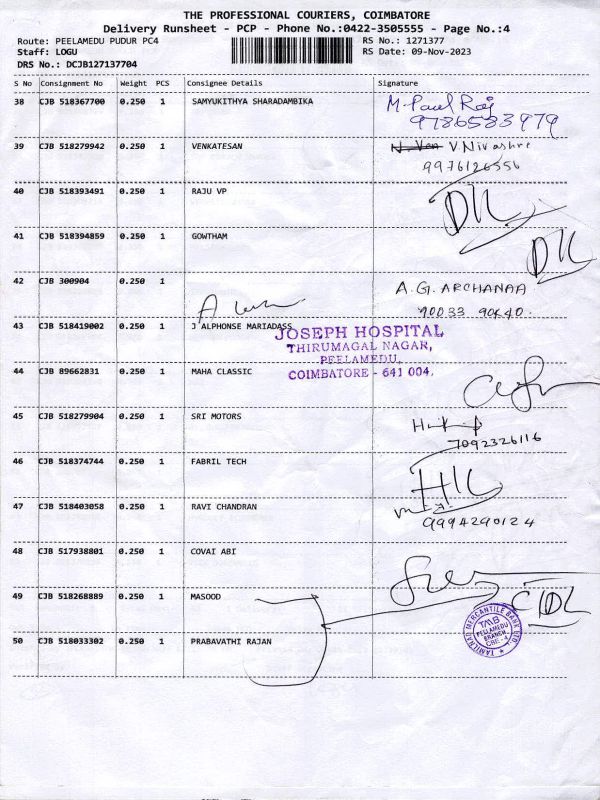 THE PROFESSIONAL COURIERS, COIMBATORE
Delivery Runsheet - PCP - Phone No.:0422-3505555 - Page No.:4
Route: PEELAMEDU PUDUR PC4 RS No.: 1271377
Staff: LOGU RS Date: 09-Nov-2023
DRS No.: DCJB127137704
S No Consignment No Weight PCS Consignee Details Signature
38 CJB 518367700 0.250 1 SAMYUKITHYA SHARADAMBIKA M. Paul Raj
9786583979
39 CJB 518279942 0.250 1 VENKATESAN V. Nivashre
9976126556
40 CJB 518393491 0.250 1 RAJU VP
41 CJB 518394859 0.250 1 GOWTHAM
42 CJB 300904 0.250 1 A.G. ARCHANAA
43 CJB 518419002 0.250 1 J ALPHONSE MARIADASS
JOSEPH HOSPITAL
THIRUMAGAL NAGAR,
PEELAMEDU,
COIMBATORE - 641 004.
44 CJB 89662831 0.250 1 MAHA CLASSIC
45 CJB 518279904 0.250 1 SRI MOTORS
7092326116
46 CJB 518374744 0.250 1 FABRIL TECH
47 CJB 518403058 0.250 1 RAVI CHANDRAN
9994290124
48 CJB 517938801 0.250 1 COVAI ABI
49 CJB 518268889 0.250 1 MASOOD
TAMILNAD MERCANTILE BANK LTD.
TMB
PEELAMEDU
BRANCH
CBE - 4
50 CJB 518033302 0.250 1 PRABAVATHI RAJAN